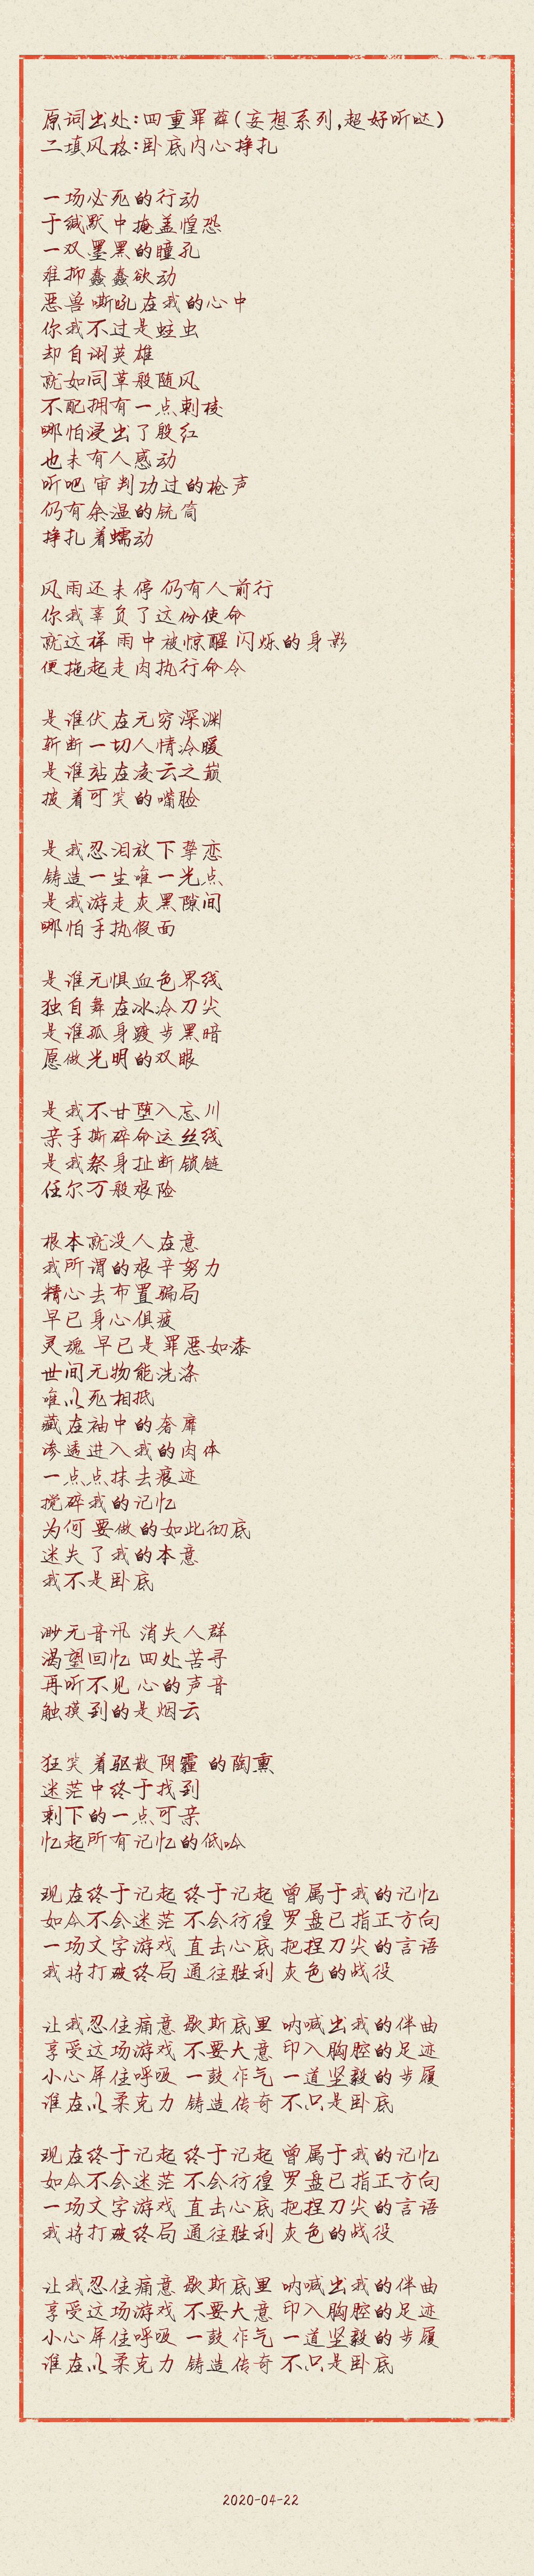 原词出处:四重罪孽(妄想系列,超好听哒)
二填风格:卧底内心挣扎
一场必死的行动
于缄默中掩盖惶恐
一双墨黑的瞳孔
难抑蠢蠢欲动
恶兽嘶吼在我的心中
你我不过是蛀虫
却自诩英雄
就如同草般随风
不配拥有一点刺棱
哪怕浸出了殷红
也未有人感动
听吧 审判功过的枪声
仍有余温的铳筒
挣扎着蠕动
风雨还未停 仍有人前行
你我辜负了这份使命
就这样 雨中被惊醒 闪烁的身影
便拖起走肉执行命令
是谁伏在无穷深渊
斩断一切人情冷暖
是谁站在凌云之巅
披着可笑的嘴脸
是我忍泪放下挚恋
铸造一生唯一光点
是我游走灰黑隙间
哪怕手执假面
是谁无惧血色界线
独自舞在冰冷刀尖
是谁孤身踱步黑暗
愿做光明的双眼
是我不甘堕入忘川
亲手撕碎命运丝线
是我祭身扯断锁链
任尔万般艰险
根本就没人在意
我所谓的艰辛努力
精心去布置骗局
早已身心俱疲
灵魂 早已是罪恶如漆
世间无物能洗涤
唯以死相抵
藏在袖中的奢靡
渗透进入我的肉体
一点点抹去痕迹
搅碎我的记忆
为何 要做的如此彻底
迷失了我的本意
我不是卧底
渺无音讯 消失人群
渴望回忆 四处苦寻
再听不见 心的声音
触摸到的是烟云
狂笑着驱散阴霾 的陶熏
迷茫中终于找到
剩下的一点可亲
忆起所有记忆的低吟
现在终于记起 终于记起 曾属于我的记忆
如今不会迷茫 不会彷徨 罗盘已指正方向
一场文字游戏 直击心底 把捏刀尖的言语
我将打破终局 通往胜利 灰色的战役
让我忍住痛意 歇斯底里 呐喊出我的伴曲
享受这场游戏 不要大意 印入胸腔的足迹
小心屏住呼吸 一鼓作气 一道坚毅的步履
谁在以柔克力 铸造传奇 不只是卧底
现在终于记起 终于记起 曾属于我的记忆
如今不会迷茫 不会彷徨 罗盘已指正方向
一场文字游戏 直击心底 把捏刀尖的言语
我将打破终局 通往胜利 灰色的战役
让我忍住痛意 歇斯底里 呐喊出我的伴曲
享受这场游戏 不要大意 印入胸腔的足迹
小心屏住呼吸 一鼓作气 一道坚毅的步履
谁在以柔克力 铸造传奇 不只是卧底
2020-04-22